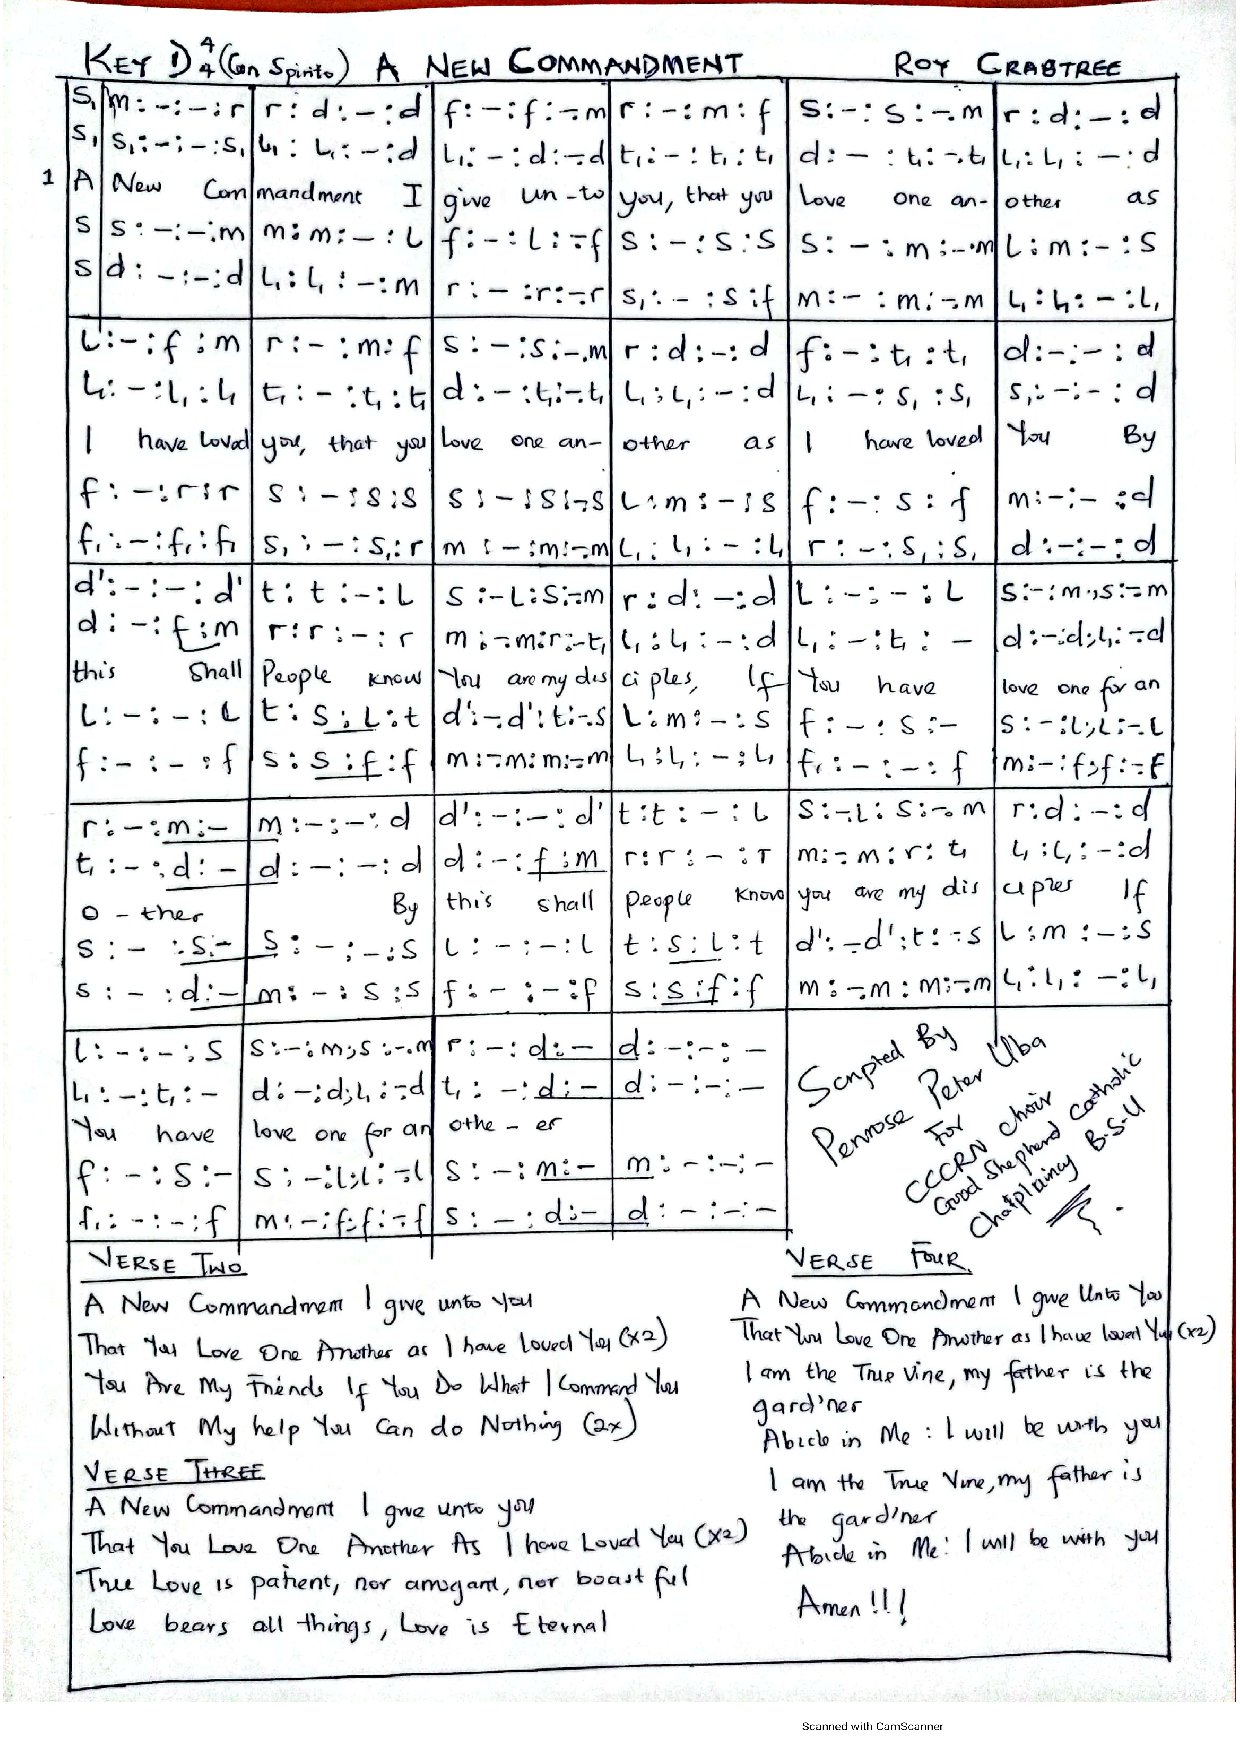 KEY D 4/4 (Con Spirito) A NEW COMMANDMENT ROY CRABTREE
s₁ | m : - : - : r | r : d : - : d | f : - : f : -. m | r : - : m : f | s : - : s : -. m | r : d : - : d
s₁ | s₁ : - : - : s₁ | l₁ : l₁ : - : d | l₁ : - : d : -. d | t₁ : - : t₁ : t₁ | d : - : t₁ : -. t₁ | l₁ : l₁ : - : d
1 A | New Com | mandment I | give un-to | you, that you | Love one an- | other as
s | s : - : - : m | m : m : - : l | f : - : l : -. f | s : - : s : s | s : - : m : -. m | l : m : - : s
s | d : - : - : d | l₁ : l₁ : - : m | r : - : r : -. r | s₁ : - : s : f | m : - : m : -. m | l₁ : l₁ : - : l₁
l : - : f : m | r : - : m : f | s : - : s : -. m | r : d : - : d | f : - : t₁ : t₁ | d : - : - : d
l₁ : - : l₁ : l₁ | t₁ : - : t₁ : t₁ | d : - : t₁ : -. t₁ | l₁ : l₁ : - : d | l₁ : - : s₁ : s₁ | s₁ : - : - : d
I have loved | you, that you | love one an- | other as | I have loved | You By
f : - : r : r | s : - : s : s | s : - : s : -. s | l : m : - : s | f : - : s : f | m : - : - : d
f₁ : - : f₁ : f₁ | s₁ : - : s₁ : r | m : - : m : -. m | l₁ : l₁ : - : l₁ | r : - : s₁ : s₁ | d : - : - : d
d' : - : - : d' | t : t : - : l | s : - l : s : -. m | r : d : - : d | l : - : - : l | s : - : m ., s : -. m
d : - : f : m | r : r : - : r | m : -. m : r : -. t₁ | l₁ : l₁ : - : d | l₁ : - : t₁ : - | d : - : d ; l₁ : -. d
this Shall | People know | You are my dis | ci ples, If | You have | love one for an
l : - : - : l | t : s : l : t | d' : -. d' : t : -. s | l : m : - : s | f : - : s : - | s : - : l ; l : -. l
f : - : - : f | s : s : f : f | m : -. m : m : -. m | l₁ : l₁ : - : l₁ | f₁ : - : - : f | m : - : f ; f : -. f
r : - : m : - | m : - : - : d | d' : - : - : d' | t : t : - : l | s : -. l : s : -. m | r : d : - : d
t₁ : - : d : - | d : - : - : d | d : - : f : m | r : r : - : r | m : -. m : r : t₁ | l₁ : l₁ : - : d
O - ther | By | this shall | people know | you are my dis | ciples If
s : - : s : - | s : - : - : s | l : - : - : l | t : s : l : t | d' : -. d' : t : -. s | l : m : - : s
s : - : d : - | m : - : s : s | f : - : - : f | s : s : f : f | m : -. m : m : -. m | l₁ : l₁ : - : l₁
l : - : - : s | s : - : m ; s : -. m | r : - : d : - | d : - : - : -
l₁ : - : t₁ : - | d : - : d ; l₁ : -. d | t₁ : - : d : - | d : - : - : -
You have | love one for an | othe - er
f : - : s : - | s : - : l ; l : -. l | s : - : m : - | m : - : - : -
f₁ : - : - : f | m : - : f ; f : -. f | s : - : d : - | d : - : - : -
Scripted By
Penrose Peter Uba
For
CCCRN choir
Good Shepherd Catholic
Chatplaincy B.S.U
VERSE TWO
A New Commandment I give unto You
That You Love One Another as I have Loved You (x2)
You Are My Friends If You Do What I Command You
Without My help You Can do Nothing (2x)
VERSE THREE
A New Commandment I give unto you
That You Love One Another As I have Loved You (x2)
True Love is patient, nor arrogant, nor boastful
Love bears all things, Love is Eternal
VERSE FOUR
A New Commandment I give Unto You
That You Love One Another as I have loved You (x2)
I am the True Vine, my father is the
gard'ner
Abide in Me : I will be with you
I am the True Vine, my father is
the gard'ner
Abide in Me : I will be with you
Amen!!!
Scanned with CamScanner